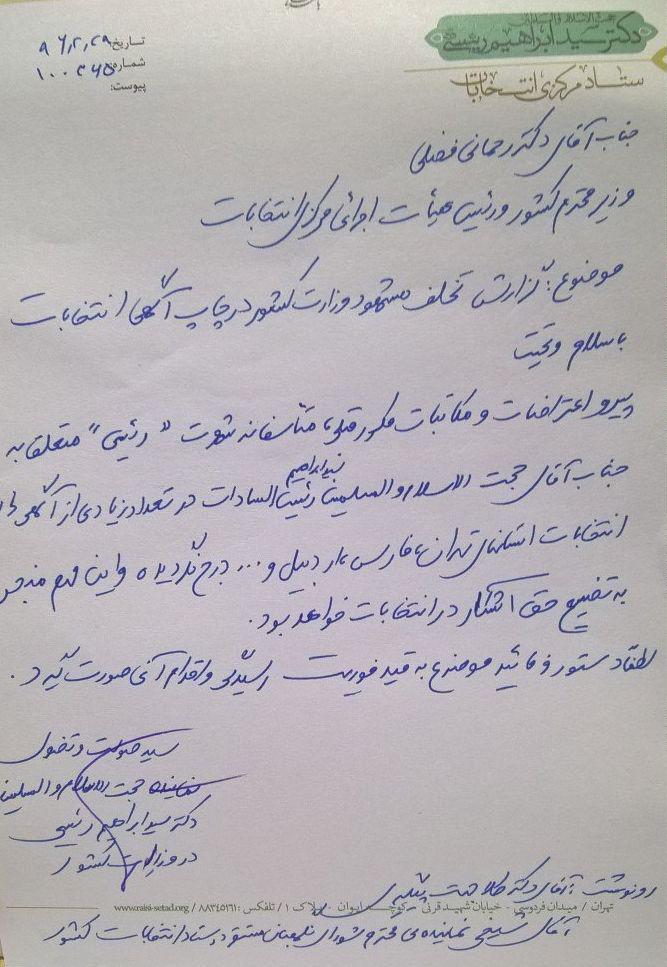 حجت الاسلام والمسلمین
دکتر سید ابراهیم رئیسی
ستاد مرکزی انتخابات
تاریخ: ۹۶,۲,۲۹
شماره: ۱۰۰۳۶۵
پیوست:
جناب آقای دکتر رحمانی فضلی
وزیر محترم کشور و رئیس هیأت اجرائی مرکزی انتخابات
موضوع: گزارش تخلف مشهود وزارت کشور در چاپ آگهی انتخابات
با سلام و تحیت
پیرو اعتراضات و مکاتبات مکرر قبلی، متأسفانه شهرت "رئیسی" متعلق به
جناب آقای حجت الاسلام والمسلمین سید ابراهیم رئیس الساداتی در تعداد زیادی از آگهی
انتخابات استانهای تهران، فارس، اردبیل و... درج نگردیده و این مهم منجر
به تضییع حق آشکار در انتخابات خواهد بود.
لطفاً دستور فرمائید موضوع به قید فوریت رسیدگی و اقدام آنی صورت گیرد.
سید صولت
نماینده حجت الاسلام والمسلمین
دکتر سید ابراهیم رئیسی
در وزارت کشور
رونوشت: آقای دکتر
تهران / میدان فردوسی - خیابان شهید قرنی - کوچه ایوان - پلاک ۱ / تلفکس: ۸۸۳۴۵۱۶۱ / www.raisi-setad.org
آقای نماینده محترم شورای نگهبان مستقر در ستاد انتخابات کشور